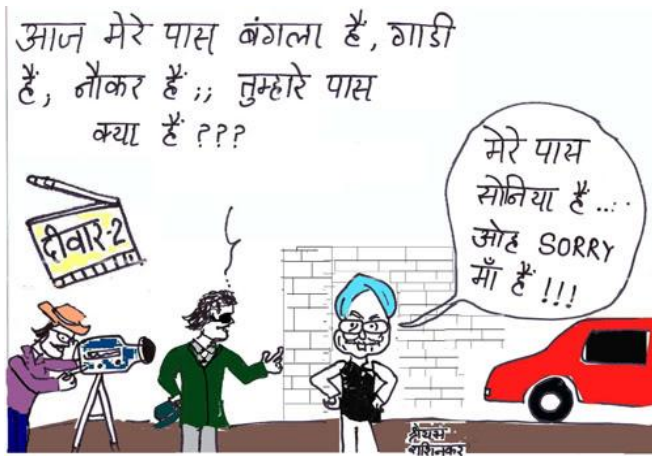 आज मेरे पास बंगला है, गाडी
है, नौकर है ;; तुम्हारे पास
क्या है ???
मेरे पास
सोनिया है ....
ओह SORRY
माँ है !!!
दीवार-2